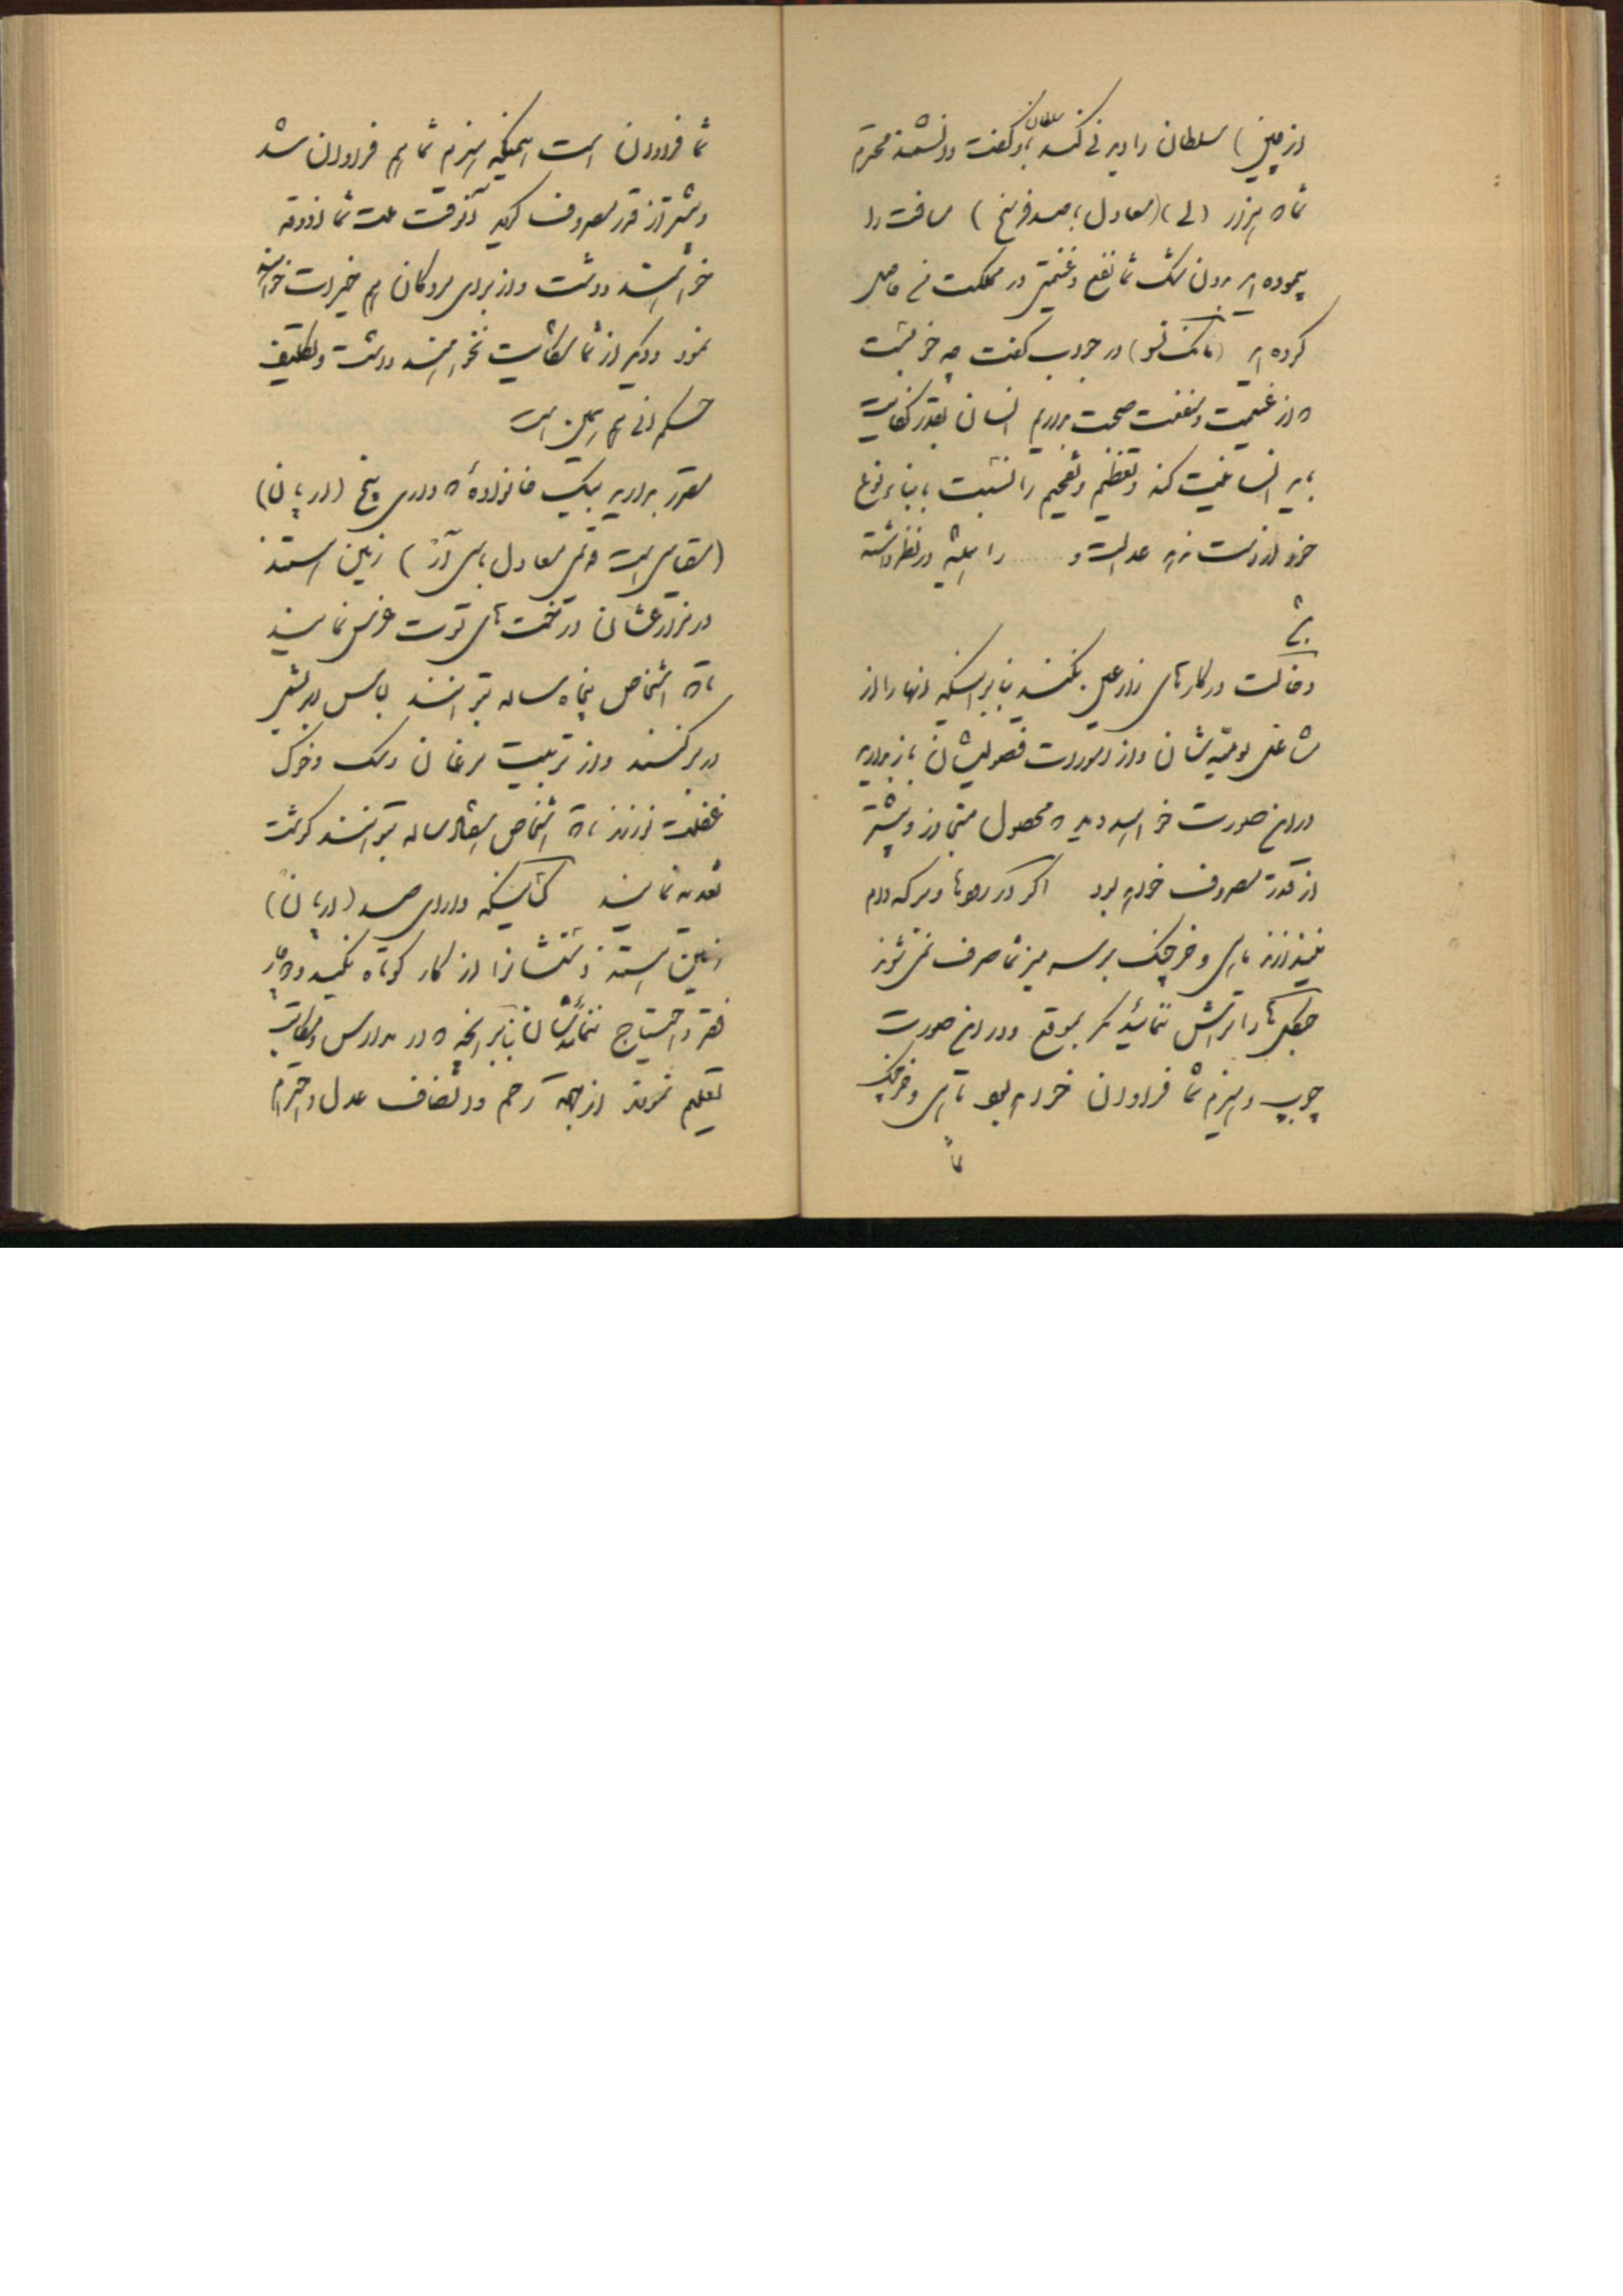 از چین) سلطان را دیدنی کند سلطان باو گفت دانشمند محترم
شما که هزار (لی) (معادل با صد فرسخ) مسافت را
پیموده‌اید بدون شک شما نفع و غنیمتی در مملکت من حاصل
کرده‌اید (مانک تسو) در جواب گفت چه خوبست
که از غنیمت و منفعت صحبت بداریم انسان بقدر کفایت
باید انسانیت کند و تعظیم و تفخیم را نسبت بابناء نوع
خود از دست ندهد عدالت و ...... را همیشه در نظر داشته
باشد
دخالت در کارهای زراعی نکنید بنابراینکه آنها را از
مشاغل یومیه‌شان و از امورات فصولیشان باز دارید
در این صورت خواهید دید که محصول متجاوز و بیشتر
از قدر مصروف خواهد بود اگر در رودها و برکه دام
نیندازند ماهی و خرچنگ بر سر میز شما صرف نمی‌شوند
جنگل‌ها را تراش ننمائید مگر بموقع و در این صورت
چوب و هیزم شما فراوان خواهد بود ماهی و خرچنگ
شما
شما فراوان است همینکه هیزم شما هم فراوان شد
و بیشتر از قدر مصروف گردید آنوقت ملت شما آذوقه
خواهند داشت و از برای مردگان هم خیرات خواهند
نمود و دیگر از شما شکایت نخواهند داشت و تکلیف
حکمرانی هم همین است
مقرر بدارید بیک خانواده که دارای پنج (ارپان)
(مقیاسی است قدیمی معادل با سی آر) زمین هستند
در مزارعشان درخت‌های توت غرس نمایند
تا که اشخاص پنجاه ساله بتوانند لباس ابریشمی
در بر کنند و از تربیت مرغان و سگ و خوک
غفلت نورزند تا که اشخاص هفتاد ساله بتوانند گوشت
تغذیه نمایند کسانیکه دارای صد (ارپان)
زمین هستند دستشانرا از کار کوتاه نکنید و دچار
فقر و احتیاج ننمائیدشان بنابر آنچه که در مدارس و مکاتب
تعلیم نمودند از جهة رحم و انصاف عدل و احترام